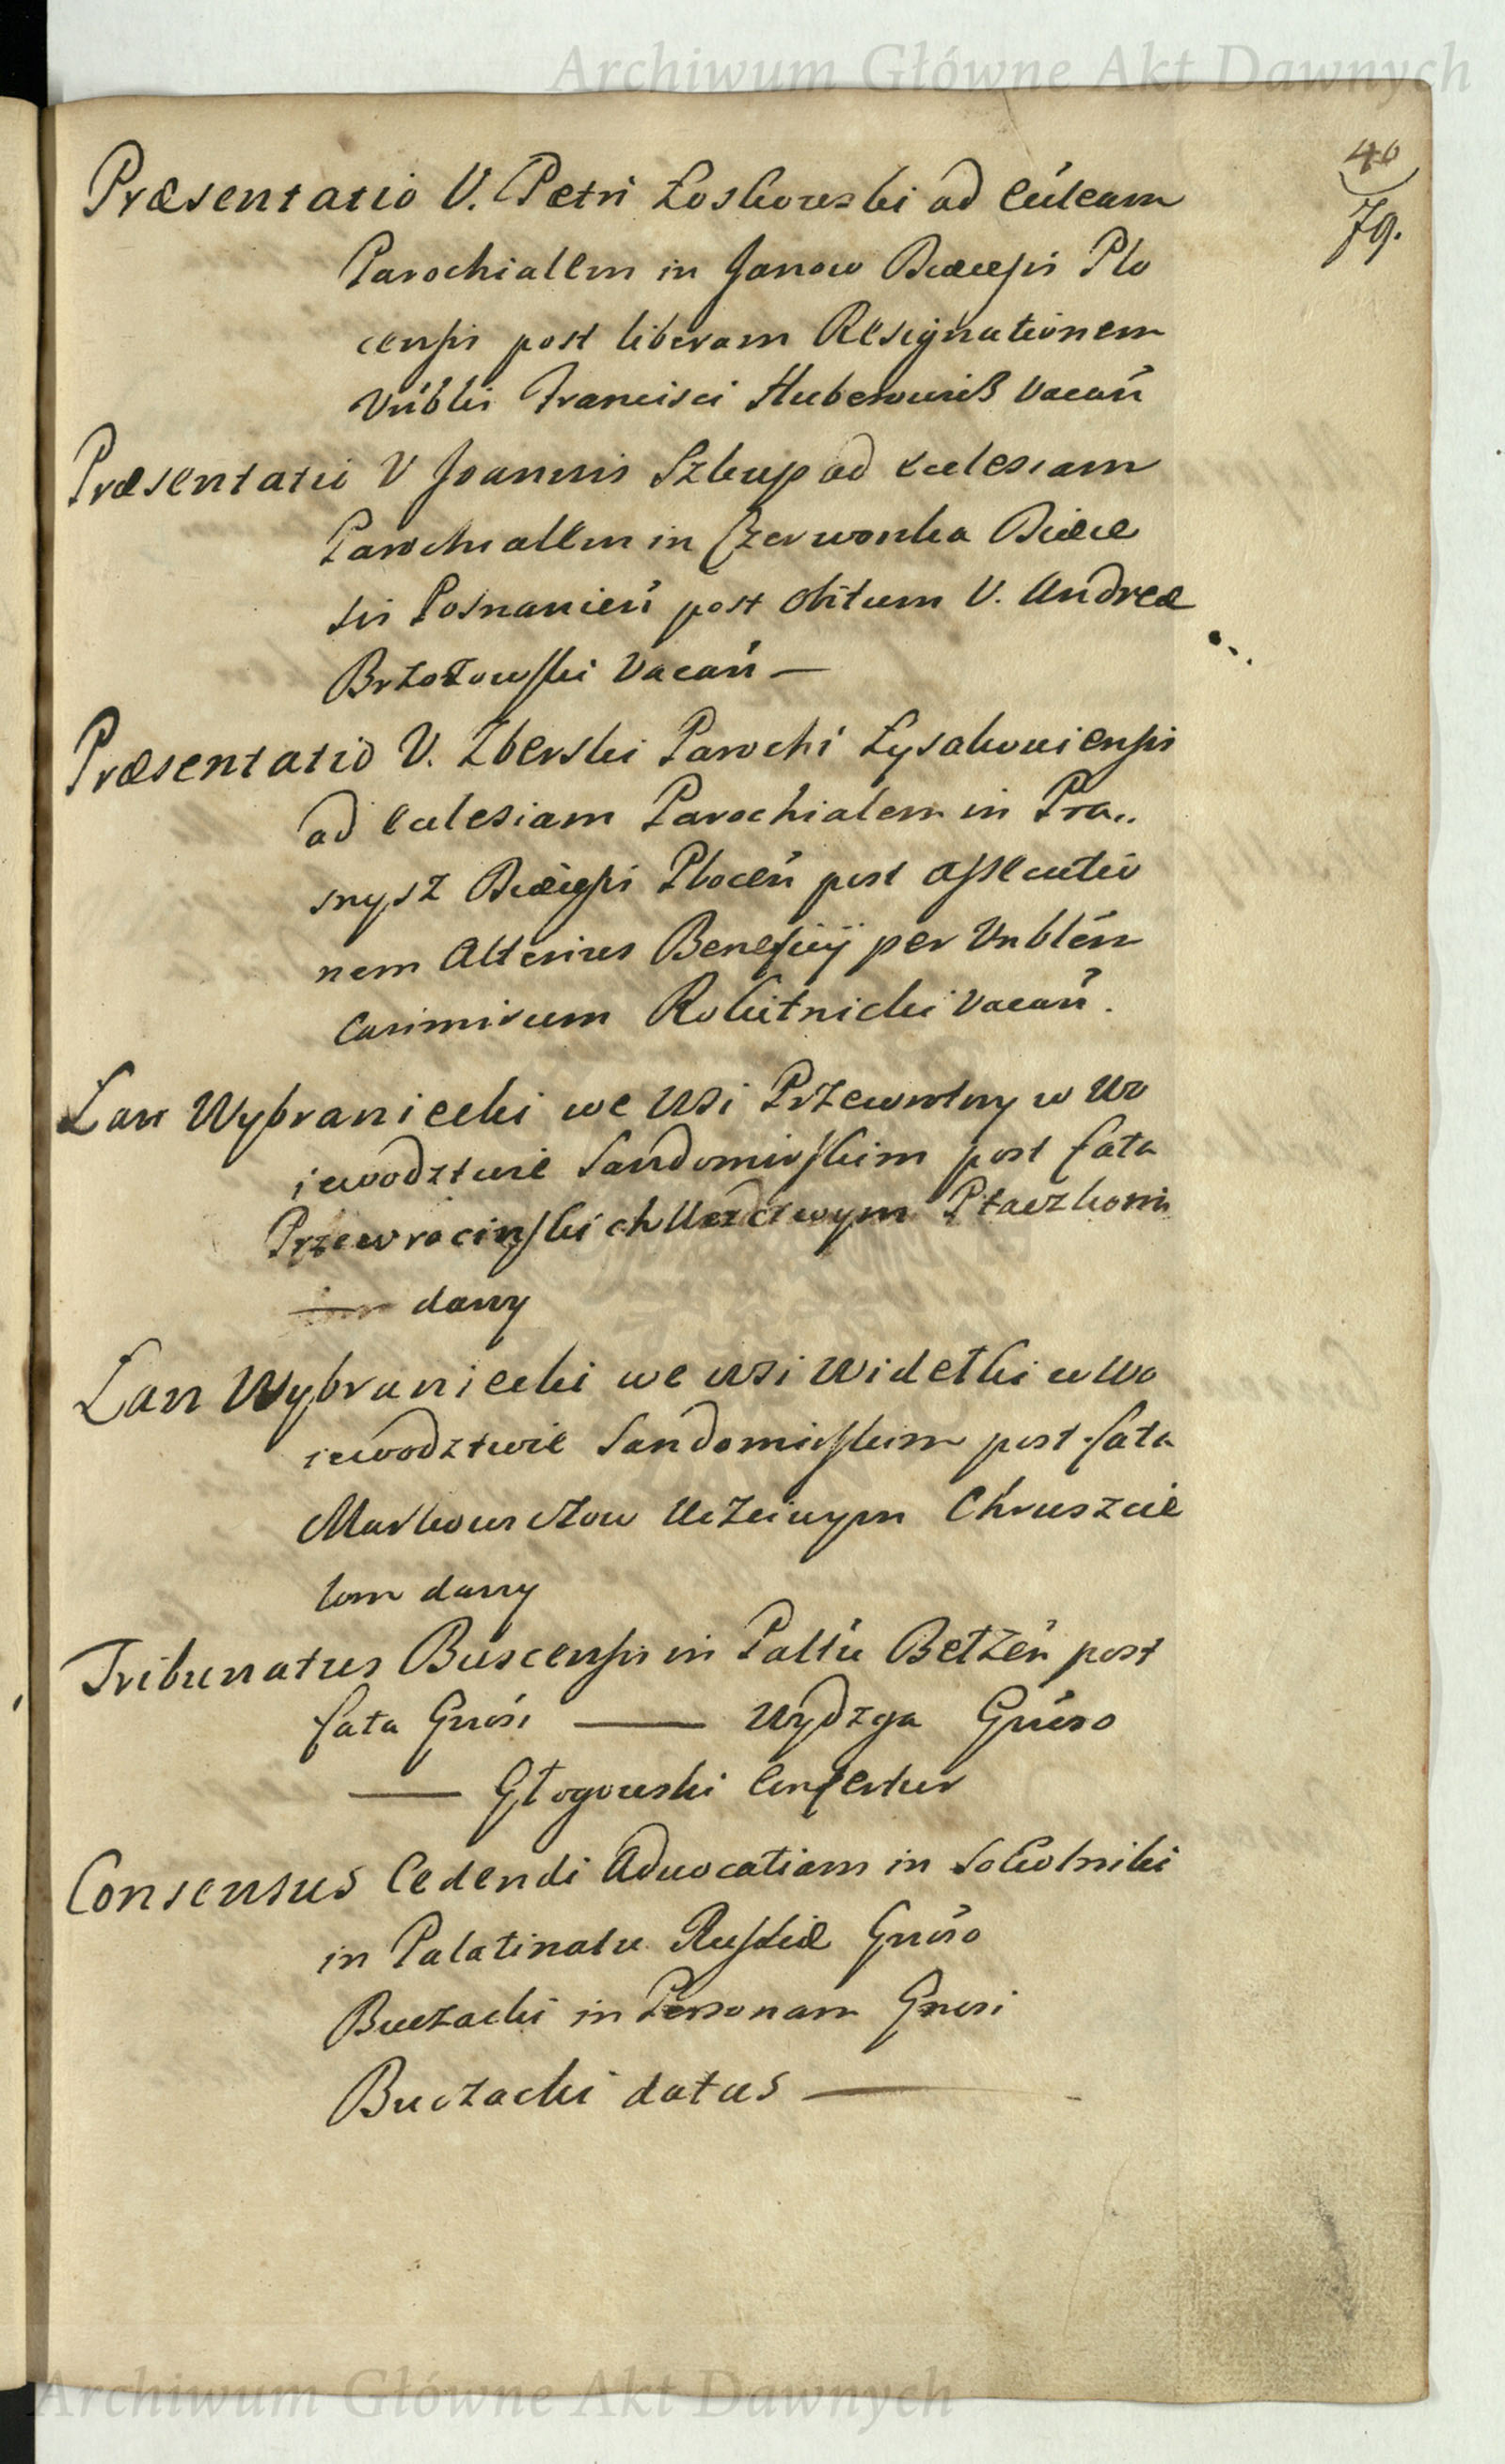 Archiwum Główne Akt Dawnych
40
79.
Præsentatio V. Petri Łoskowski ad Ecúleam
Parochialem in Janow Diæcesis Plo
censis post liberam Resignationem
Vniblis Francisci Huberowicz Vacań
Præsentatio V Joannis Szkup ad Ecclesiam
Parochialem in Czerwonka Diæce
sis Posnanień post obitum V. Andreæ
Brzozowski Vacań —
Præsentatio V. Zberski Parochi Łysakoviensis
ad Ecclesiam Parochialem in Pra..
snysz Diæcesis Płoceń post assecutio
nem Alterius Beneficij per Vnblém
Casimirum Robitnicki Vacań.
Łan Wybraniecki we Wsi Przewrotny w Wo
iewodztwie Sandomirskim post fata
Przewrocinskich Uczciwym Ptaszkom
dany
Łan Wybraniecki we wsi Widełki w Wo
iewodztwie Sandomirskim post fata
Markowiczow Uczciwym Chruszcie
lom dany
Tribunatus Buscensis in Paltú Bełzeń post
fata Gnosi — Wydzga Gnoso
— Głogowski Confertur
Consensus Cedendi Advocatiam in Sokolniki
in Palatinatu Russiæ Gnoso
Buczacki in Personam Gnosi
Buczacki datus —
Archiwum Główne Akt Dawnych